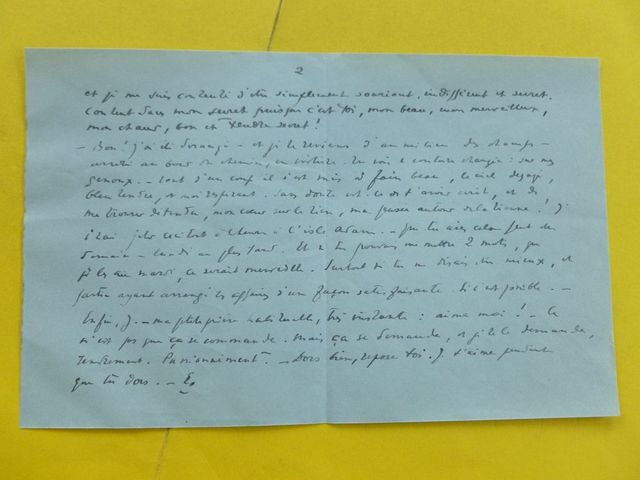 2
et je me suis contenté d'être simplement souriant, indifférent et secret.
Content dans mon secret puisque c'est toi, mon beau, mon merveilleux,
mon chaud, bon et tendre secret !
— Bon ! j'ai été dérangé — et je te reviens d'au milieu des champs —
arrêté au bord du chemin, en voiture. Tu vois l'écriture change : sur mes
genoux. — Tout d'un coup il s'est mis à faire beau, le ciel dégagé,
bleu tendre, et moi respirant. Sans doute est-ce de t'avoir écrit, et de
me trouver détendu, mon cœur sur le tien, ma pensée autour de la tienne ! J
à l'Isle Adam. — que tu aies cela
demain — lundi au plus tard. Et si tu pouvais me mettre 2 mots, que
je les aie mardi, ce serait merveille. Surtout si tu me disais du mieux, et
ayant arrangé les affaires d'un façon satisfaisante. Si c'est possible. —
Enfin, J. — ma ptite prière habituelle, très instante : aime moi ! — Ce
n'est pas que ça se commande. Mais ça se demande, et je te le demande,
Tendrement. Passionnément. — Dors bien, repose toi. J. t'aime pendant
que tu dors. — E.